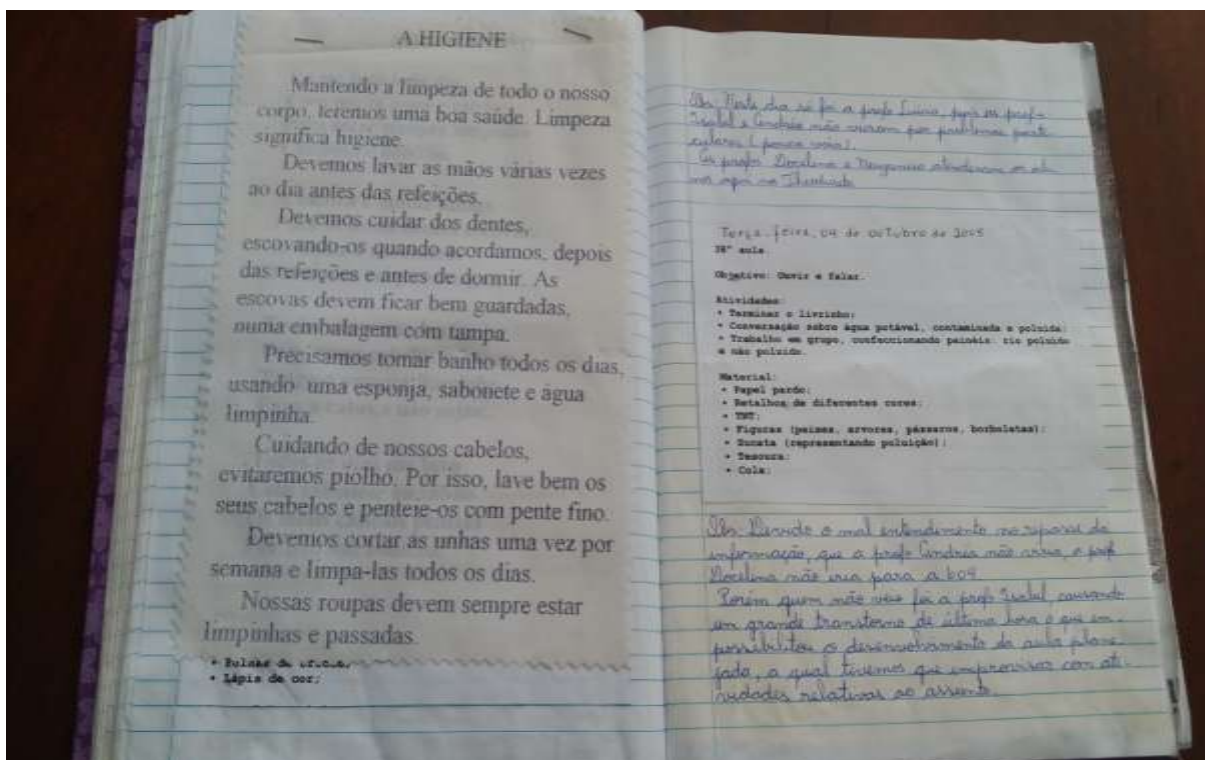 A HIGIENE
Mantendo a limpeza de todo o nosso
corpo, teremos uma boa saúde. Limpeza
significa higiene.
Devemos lavar as mãos várias vezes
ao dia antes das refeições.
Devemos cuidar dos dentes,
escovando-os quando acordamos, depois
das refeições e antes de dormir. As
escovas devem ficar bem guardadas,
numa embalagem com tampa.
Precisamos tomar banho todos os dias,
usando uma esponja, sabonete e água
limpinha.
Cuidando de nossos cabelos,
evitaremos piolho. Por isso, lave bem os
seus cabelos e penteie-os com pente fino.
Devemos cortar as unhas uma vez por
semana e limpa-las todos os dias.
Nossas roupas devem sempre estar
limpinhas e passadas.
• Lápis de cor;
Obs. Neste dia só foi a profe Luiza, pois as profs
Isabel e Andréa não vieram por problemas parti-
culares (pouca coisa).
As profes Docelina e atenderam os alu-
nos aqui no
Terça-feira, 04 de outubro de 2005
38ª aula.
Objetivo: Ouvir e falar.
Atividades:
• Terminar o livrinho;
• Conversação sobre água potável, contaminada e poluída;
• Trabalho em grupo, confeccionando painéis: rio poluído
e não poluído.
Material:
• Papel pardo;
• Retalhos de diferentes cores;
• TNT;
• Figuras (peixes, arvores, pássaros, borboletas);
• Sucata (representando poluição);
• Tesoura;
• Cola;
Obs. Devido o mal entendimento no repasse de
informação, que a profe Andréa não viria, a prof
Docelina não iria para a
Porém quem não veio foi a profe Isabel, causando
um grande transtorno de última hora o que im-
possibilitou o desenvolvimento da aula plane-
jada, a qual tivemos que improvisar com ati-
vidades relativas ao assunto.